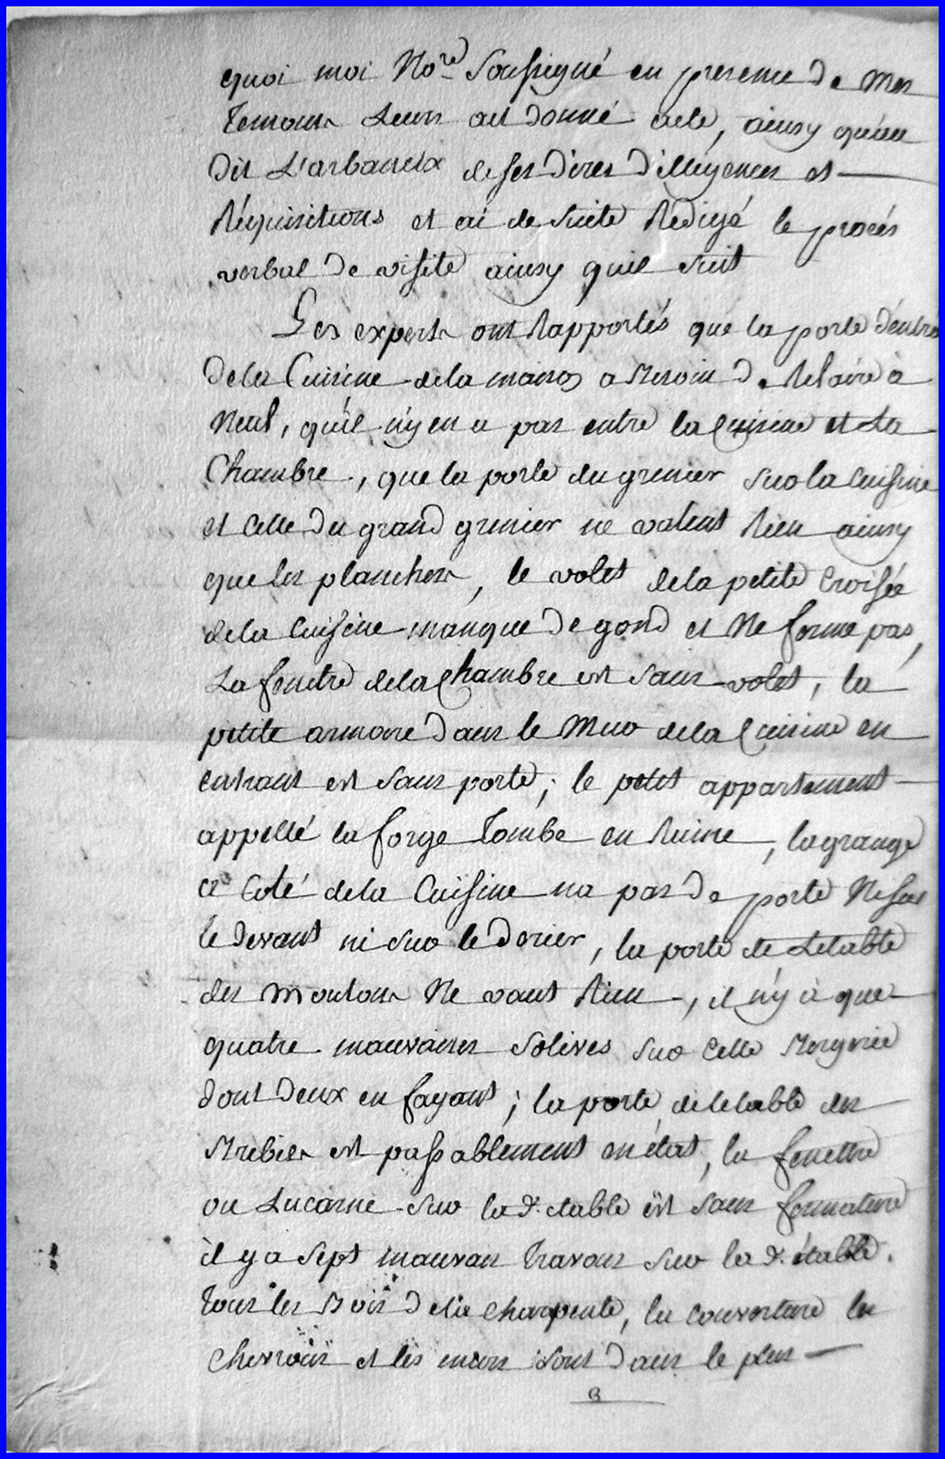 quoi moi No.re Soussigné en presence de mes
temoins Leurs ait donné acte, ainsy qu'au
dit L'arbaneix de ses dires dilligences et
Réquisitions et ai de suite Rédigé le procés
verbal de visite ainsy quil suit
Les experts ont Rapportés que la porte d'entré
de la Cuisine de la maison a besoin de Refaire à
neuf, qu'il n'y en a pas entre la Cuisine et la
Chambre, que la porte du grenier sur la Cuisine
et Celle du grand grenier ne valent Rien ainsy
que les planchers, le volet de la petite Croisée
de la Cuisine manque de gond et Ne ferme pas,
La fenetre de la Chambre est sans volet, la
petite armoire dans le Mur de la Cuisine en
entrant est sans porte; le petit appartement
appellé la forge tombe en Ruine, la grange
a Coté de la Cuisine na pas de porte Ni sur
le devant ni sur le derier, la porte de Letable
des moutons Ne vaut Rien, il n'y a que
quatre mauvaises Solives sur Celle
dont deux en fayant; la porte de letable des
Brebies est passablement en état, la fenettre
ou Lucarne sur la d. etable est sans fermature
il y a sept mauvais travons sur la d. étable.
tous les Bois de la charpente, la couverture les
chevrons et les murs sont dans le plus
B